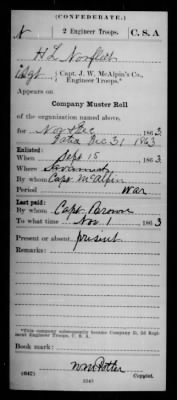 (CONFEDERATE.)
N 2 Engineer Troops. C. S. A
H L Norfleet
1 Sgt, Capt. J. W. McAlpin's Co., Engineer Troops.*
Appears on
Company Muster Roll
of the organization named above,
for Nov & Dec 1863
Dated Dec 31 1863
Enlisted:
When Sept 15 1863
Where Savannah
By whom Capt. McAlpin
Period War
Last paid:
By whom Capt Brown
To what time Nov 1 1863
Present or absent present
Remarks:
*This company subsequently became Company D, 2d Regiment Engineer Troops, C. S. A.
Book mark:
(642)
Copyist.